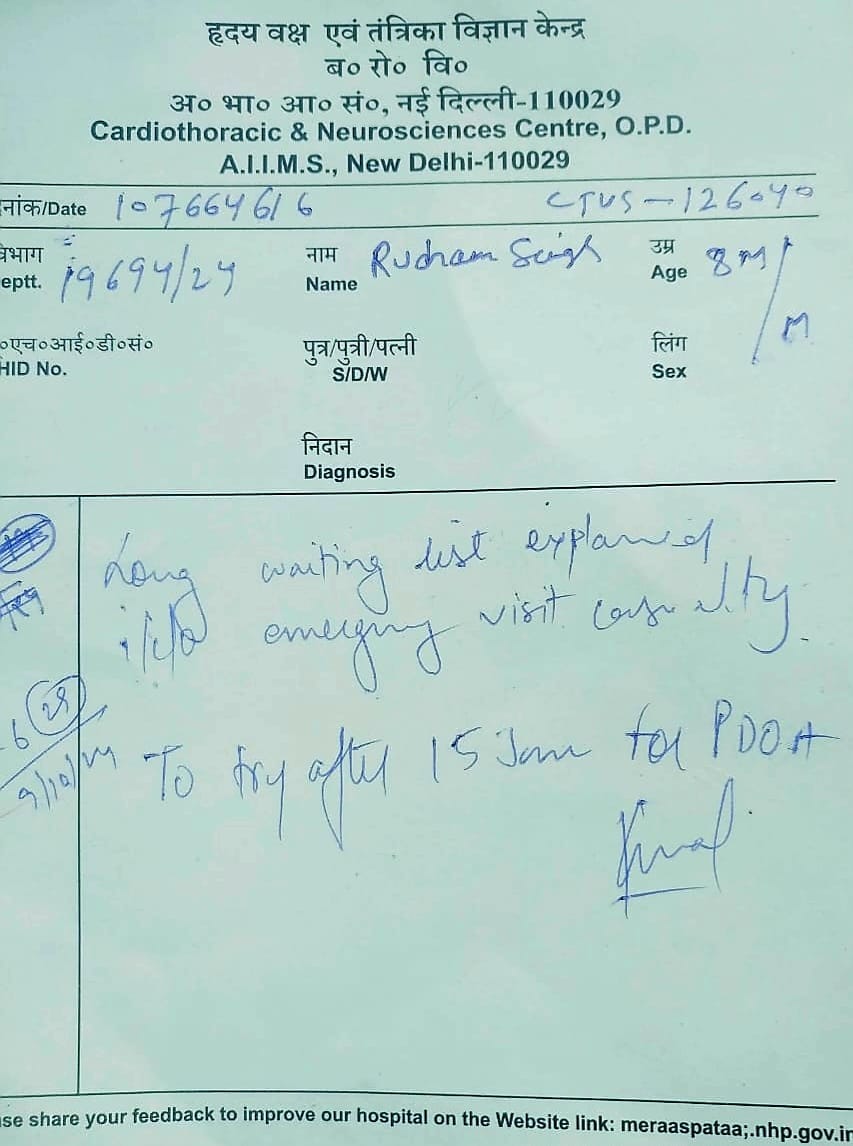 हृदय वक्ष एवं तंत्रिका विज्ञान केन्द्र
ब० रो० वि०
अ० भा० आ० सं०, नई दिल्ली-110029
Cardiothoracic & Neurosciences Centre, O.P.D.
A.I.I.M.S., New Delhi-110029
नांक/Date 107664616 CTVS-126040
भाग
eptt. 19694/24
नाम
Name Rudham Singh
उम्र
Age 8M/M
०एच०आई०डी०सं०
HID No.
पुत्र/पुत्री/पत्नी
S/D/W
लिंग
Sex
निदान
Diagnosis
Long waiting list explained
i/c/o emergency visit casualty.
28
9/10/24
To try after 15 Jan for PDOA
se share your feedback to improve our hospital on the Website link: meraaspataa;.nhp.gov.in